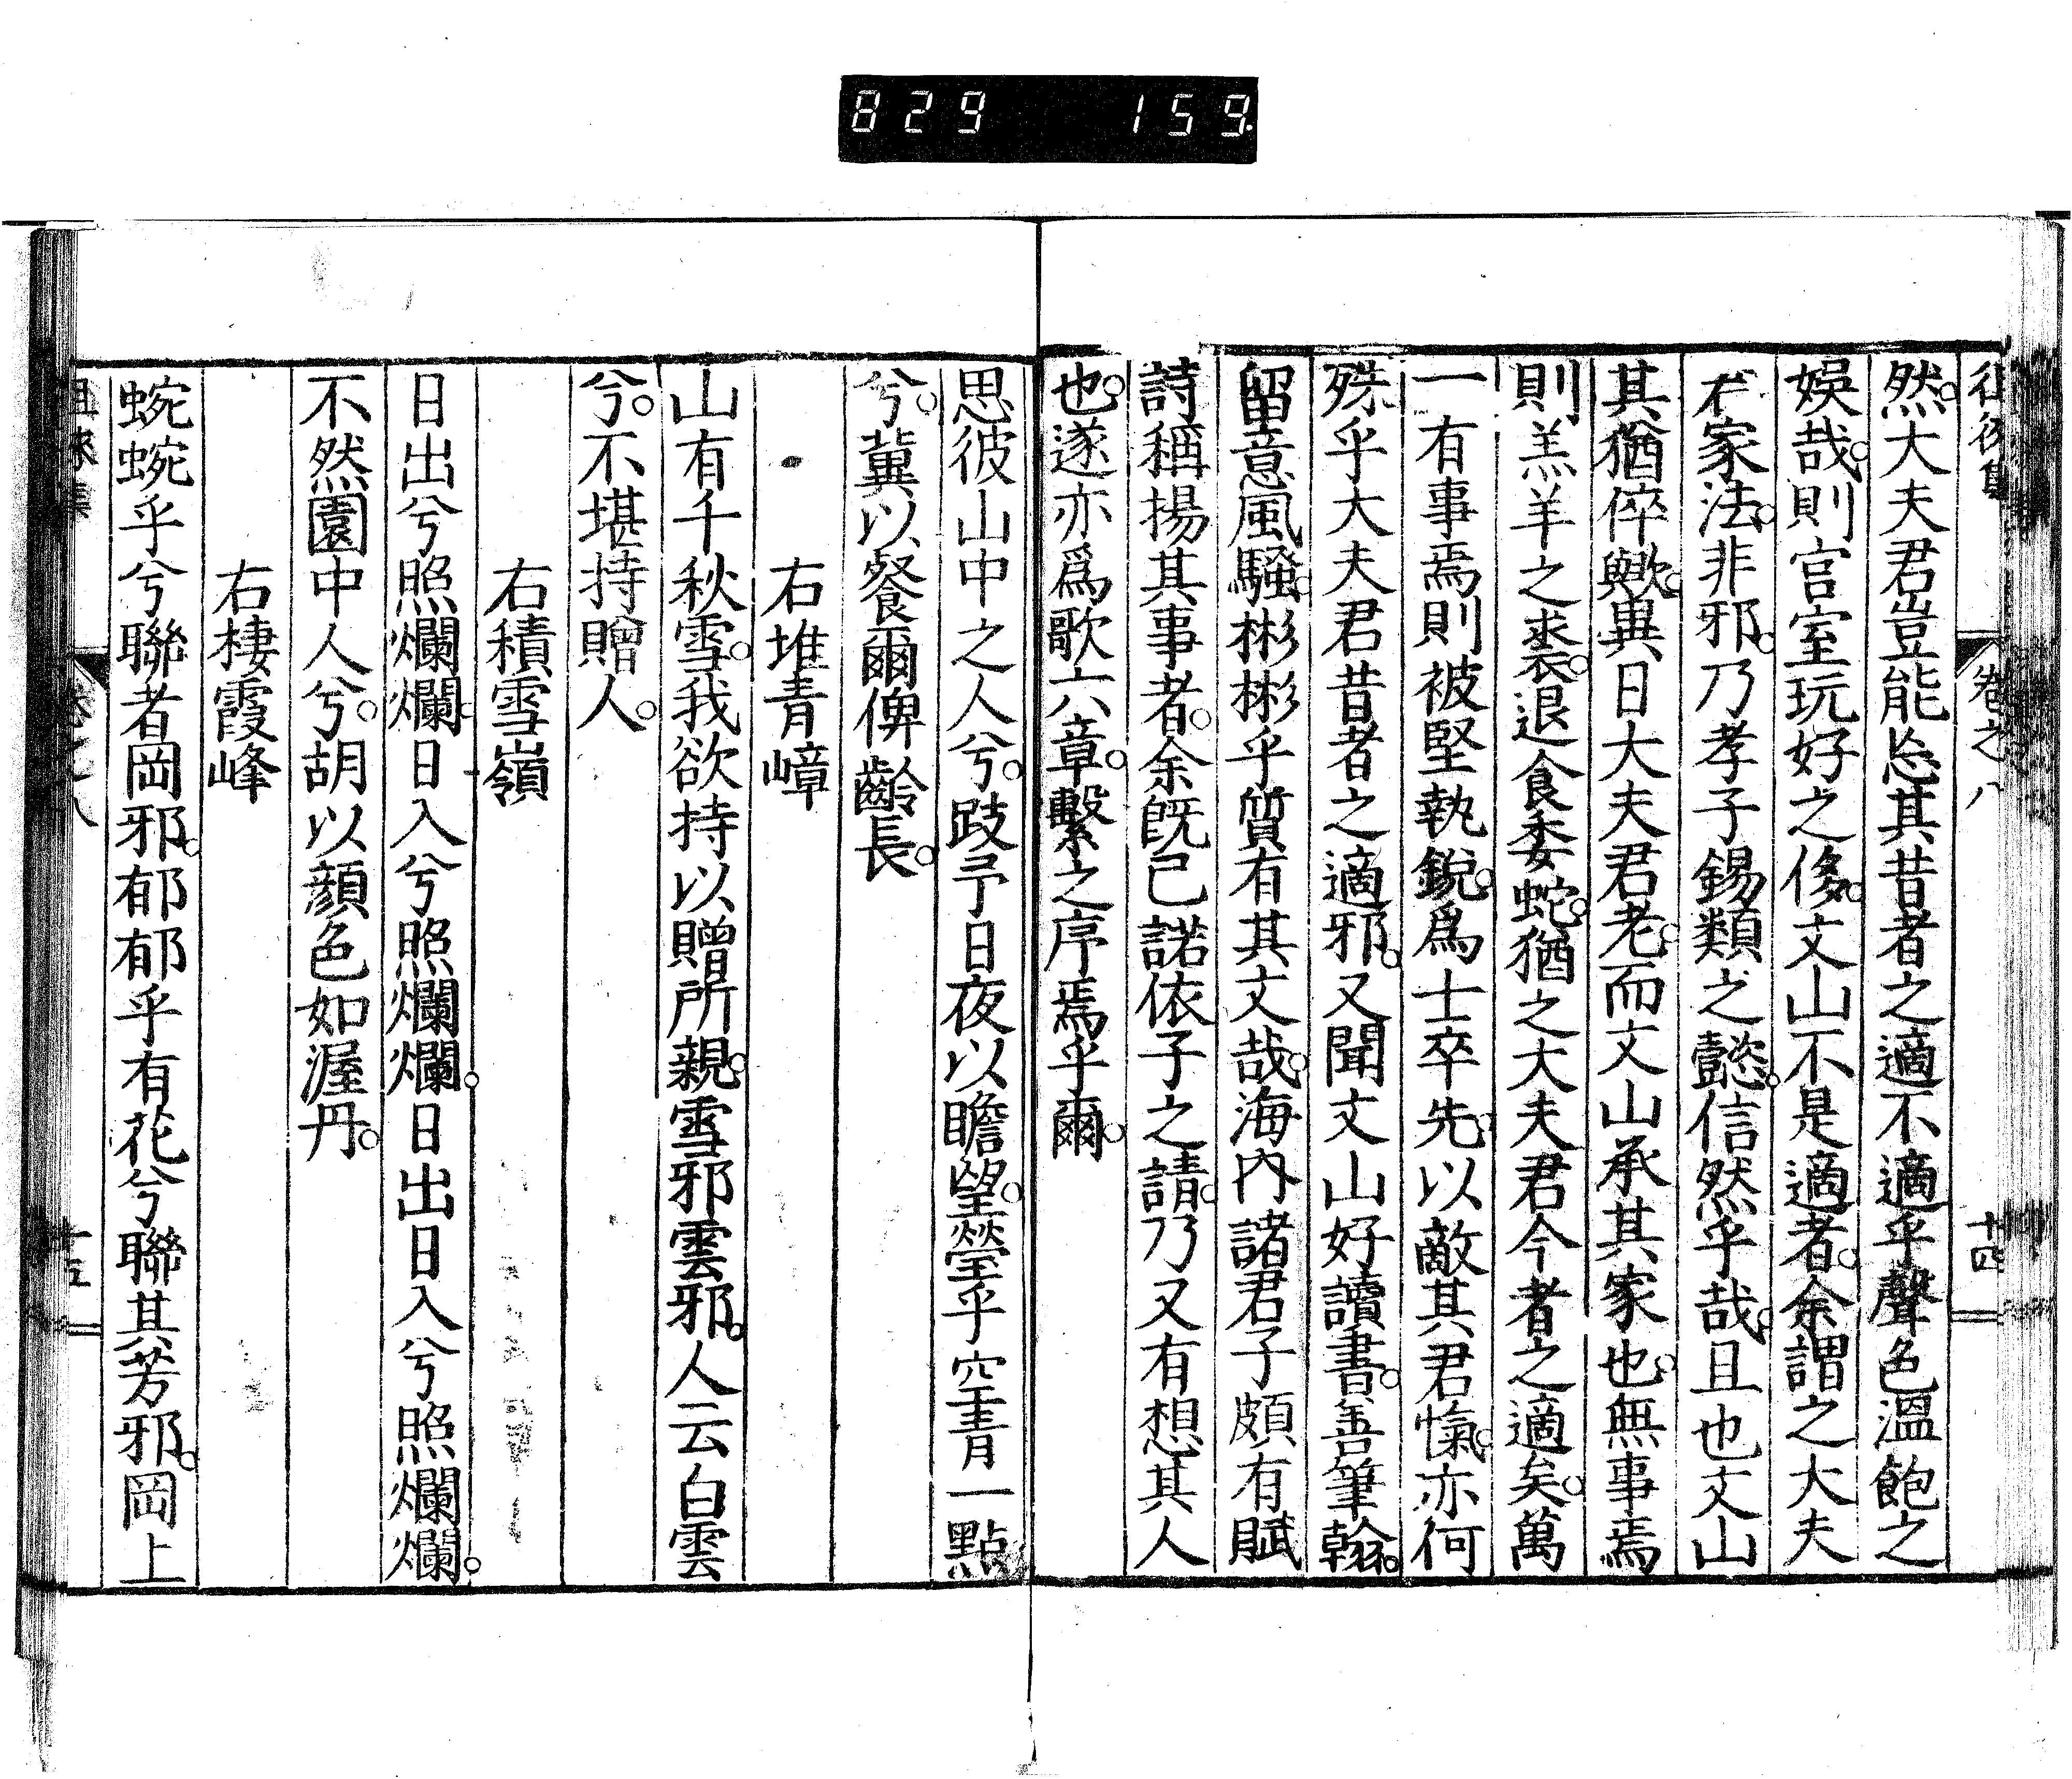 829 159
徂徠集 卷之八 十四
然。大夫君豈能忘其昔者之適不適乎聲色溫飽之
娛哉。則宮室玩好之侈。文山不是適者。余謂之大夫
君家法。非邪。乃孝子錫類之懿。信然乎哉。且也文山
其猶倅歟。異日大夫君老。而文山承其家也。無事焉
則羔羊之裘。退食委蛇。猶之大夫君今者之適矣。萬
一有事焉則被堅執銳。爲士卒先。以敵其君愾。亦何
殊乎大夫君昔者之適邪。又聞文山好讀書。善筆翰。
留意風騷。彬彬乎質有其文哉。海內諸君子頗有賦
詩稱揚其事者。余旣已諾依子之請。乃又有想其人
也。遂亦爲歌六章。繫之序焉乎爾。
思彼山中之人兮。跂予日夜以瞻望。瑩乎空青一點
兮。冀以餐爾俾齡長。
右堆青嶂
山有千秋雪。我欲持以贈所親。雪邪雲邪。人云白雲
兮。不堪持贈人。
右積雪嶺
日出兮照爛爛。日入兮照爛爛。日出日入兮照爛爛。
不然園中人兮。胡以顏色如渥丹。
右棲霞峰
蜿蜿乎兮聯者岡邪。郁郁乎有花兮聯其芳邪。岡上
徂徠集 卷之八 十五